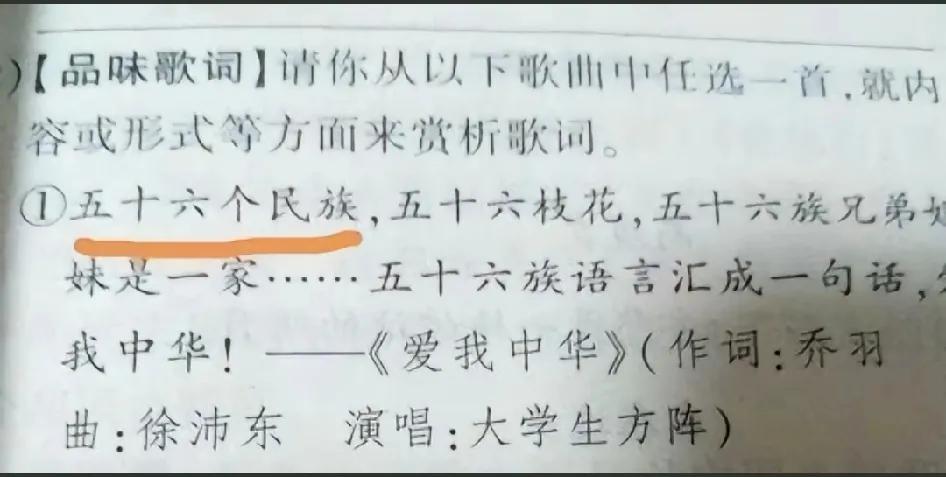 )【品味歌词】请你从以下歌曲中任选一首,就内
容或形式等方面来赏析歌词。
①五十六个民族,五十六枝花,五十六族兄弟
妹是一家……五十六族语言汇成一句话,
我中华!——《爱我中华》(作词:乔羽
曲:徐沛东 演唱:大学生方阵)